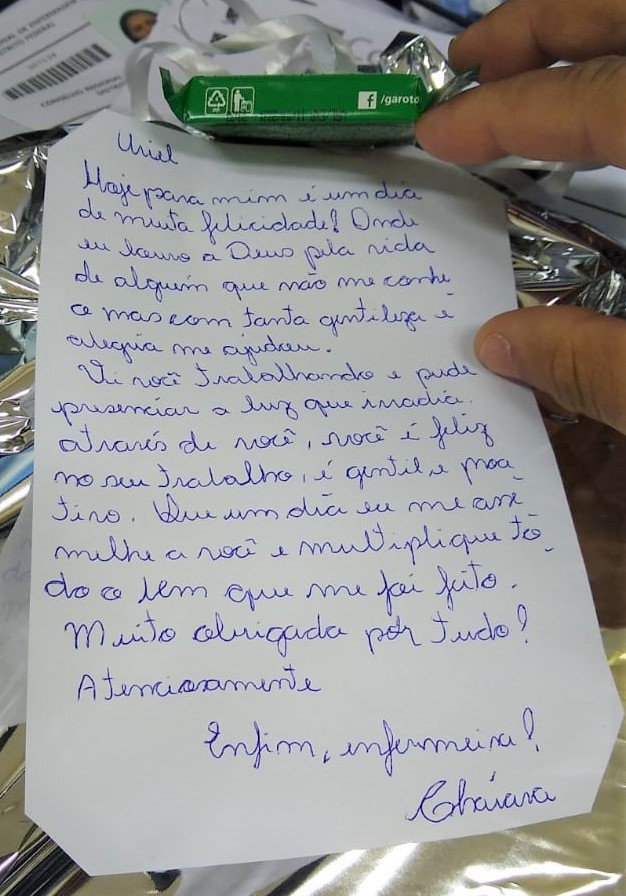 CONSELHO REGIONAL
PP
f /garoto
Uriel
Hoje para mim é um dia
de muita felicidade! Onde
eu louvo a Deus pela vida
de alguém que não me conhe
ce mas com tanta gentileza e
alegria me ajudou.
Vi você trabalhando e pude
presenciar a luz que irradia
através de você, você é feliz
no seu trabalho, é gentil e proa
tivo. Que um dia eu me asse
melhe a você e multiplique to
do o bem que me foi feito.
Muito obrigada por tudo!
Atenciosamente
Enfim, enfermeira!